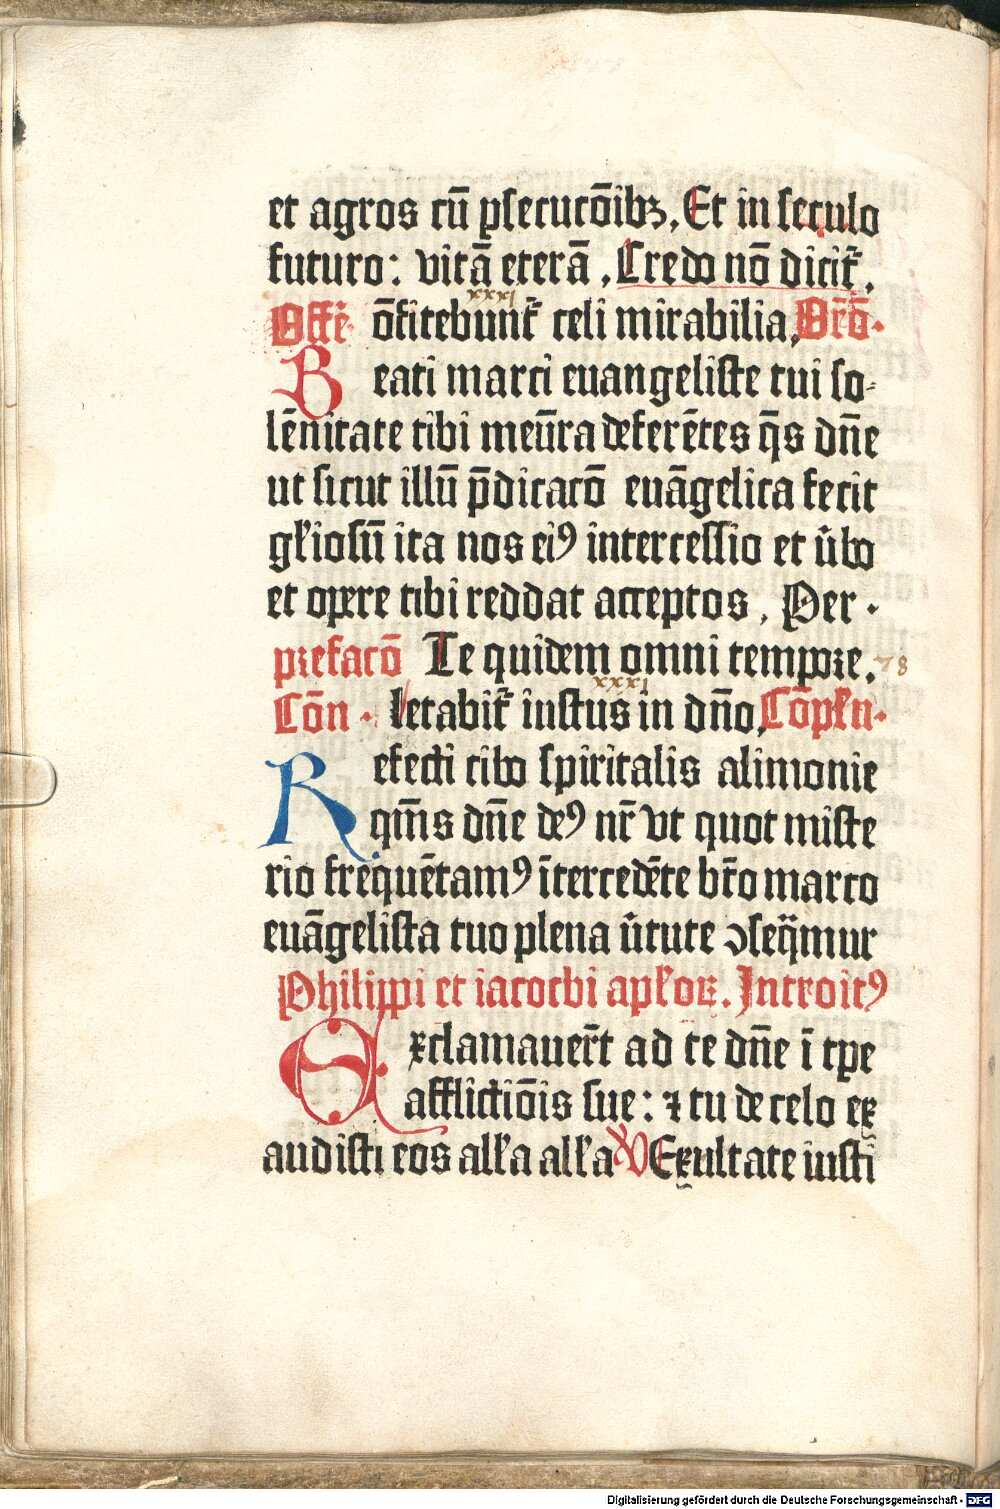 et agros cū ꝑsecucōibꝫ. Et in seculo
futuro: vitā eterā. Credo nō dicit᷑.
xxxi
Offē. ōfitebunt᷑ celi mirabilia, Orō.
Beati marci euangeliste tui so-
lēnitate tibi meūra deferētes q̄s dn̄e
ut sicut illū p̄dicacō euāgelica fecit
gl̓iosū ita nos eiꝰ intercessio et u̓bo
et opere tibi reddat acceptos. Per.
prefacō Te quidem omni tempore. 78
xxxi
Cōn. letabit᷑ iustus in dn̄o, Cōpln̄.
Refecti cibo spiritalis alimonie
qm̄s dn̄e deꝰ nr̄ vt quot miste
rio frequētamꝰ ītercedēte bt̄o marco
euāgelista tuo plena u̓tute ↄseq̄mur
Philippi et iacocbi apl̓oꝝ. Introitꝰ
Exclamauer̄t ad te dn̄e ī tꝑe
afflictiōis sue: ⁊ tu de celo ex
audisti eos all̓a all̓a V Exultate iusti
Digitalisierung gefördert durch die Deutsche Forschungsgemeinschaft - DFG